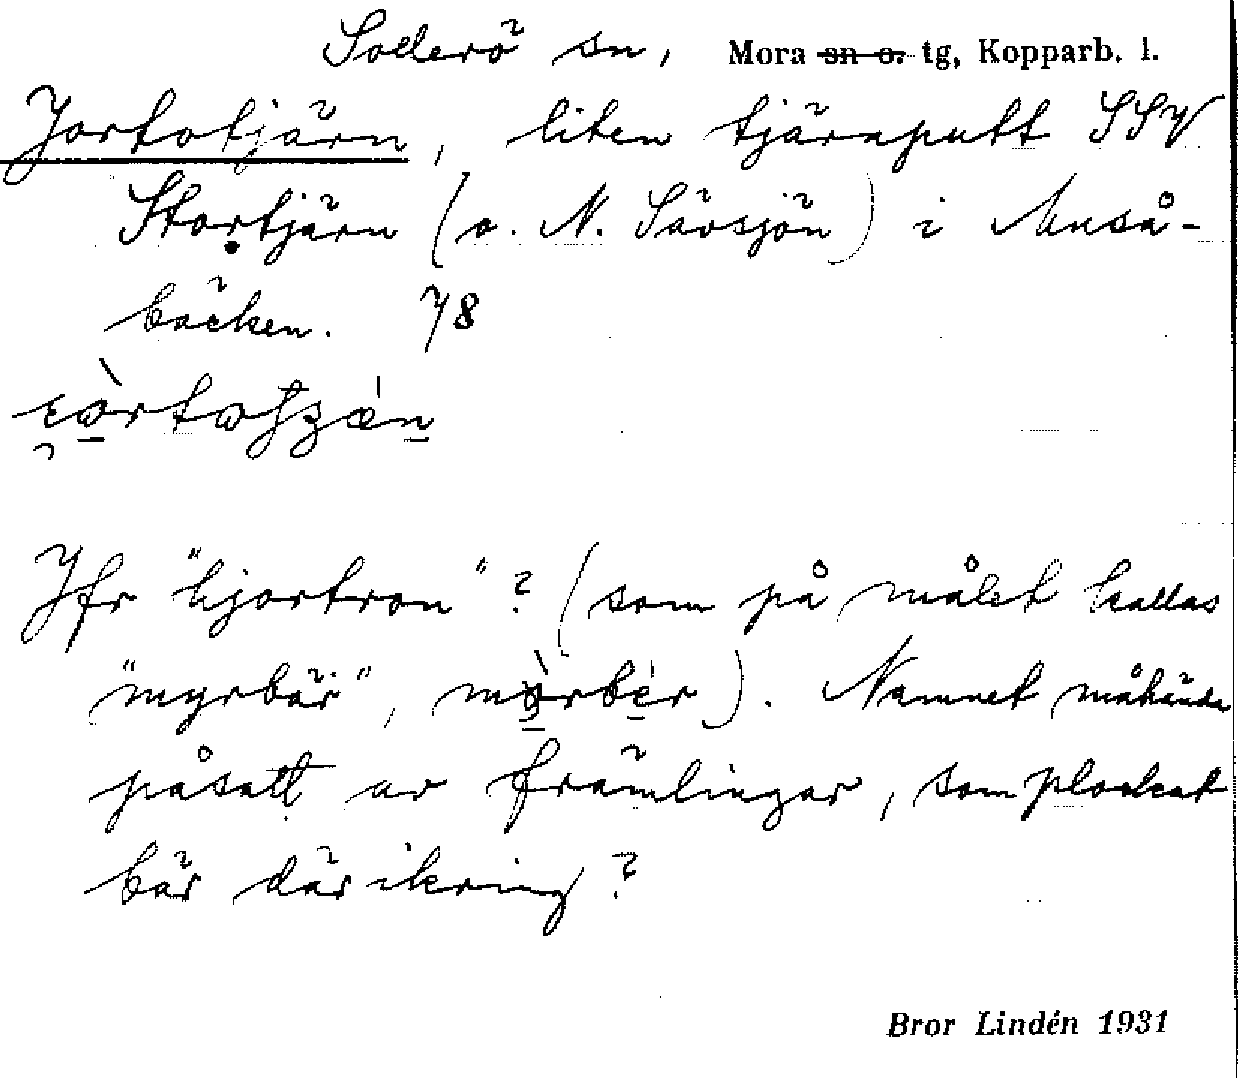 Sollerö sn, Mora sn o. tg, Kopparb. l.
Jortotjärn, liten tjärnputt SSV
Stortjärn (o. N. Sävsjön) i Muså-
bäcken. 78
Jfr "hjortron"? (som på målet kallas
"myrbär", mȯrbėr). Namnet måhända
påsatt av främlingar, som plockat
bär däri kring?
Bror Lindén 1931